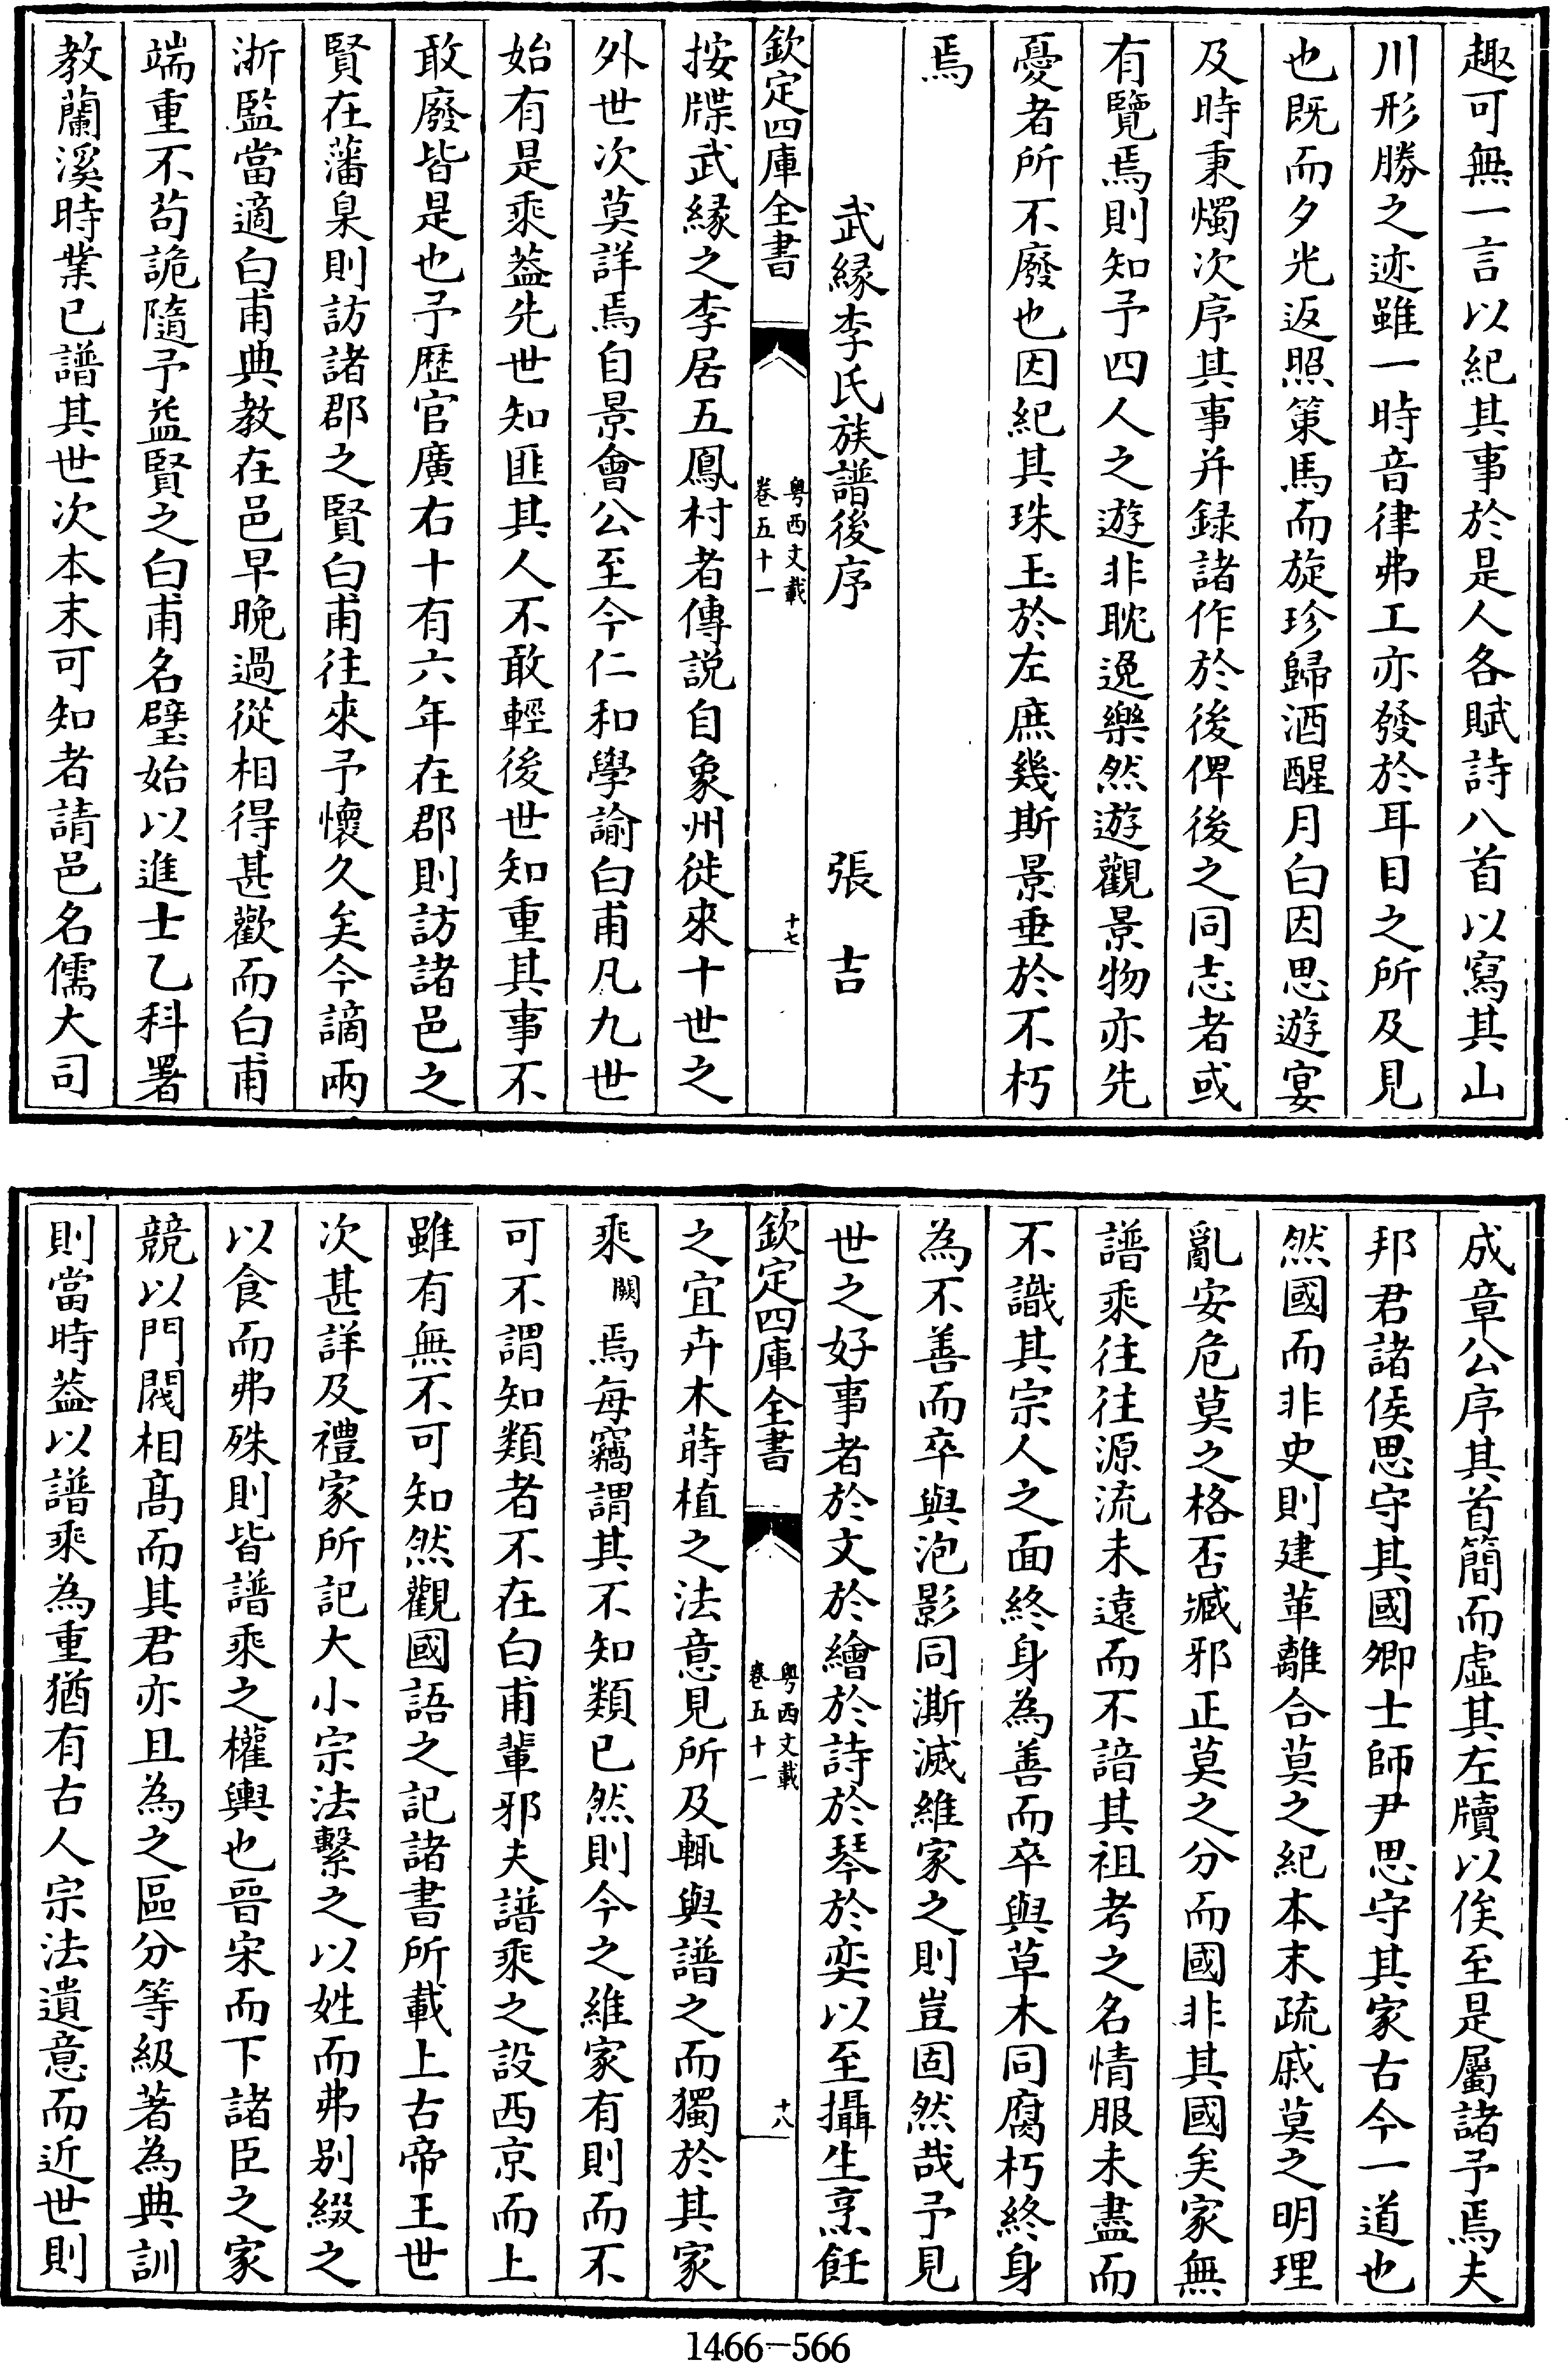 趣可無一言以紀其事於是人各賦詩八首以寫其山
川形勝之迹雖一時音律弗工亦發於耳目之所及見
也既而夕光返照策馬而旋珍歸酒醒月白因思遊宴
及時秉燭次序其事并録諸作於後俾後之同志者或
有覽焉則知予四人之遊非耽逸樂然遊觀景物亦先
憂者所不廢也因紀其珠玉於左庶幾斯景垂於不朽
焉
武緣李氏族譜後序 張吉
欽定四庫全書 粤西文載 卷五十一 十七
按牒武緣之李居五鳳村者傳説自象州徙來十世之
外世次莫詳焉自景會公至今仁和學諭白甫凡九世
始有是乘葢先世知匪其人不敢輕後世知重其事不
敢廢皆是也予歴官廣右十有六年在郡則訪諸邑之
賢在藩臬則訪諸郡之賢白甫往來予懷久矣今謫兩
浙監當適白甫典教在邑早晚過從相得甚歡而白甫
端重不苟詭隨予益賢之白甫名璧始以進士乙科署
教蘭溪時業已譜其世次本末可知者請邑名儒大司
成章公序其首簡而虛其左牘以俟至是屬諸予焉夫
邦君諸侯思守其國卿士師尹思守其家古今一道也
然國而非史則建革離合莫之紀本末疏戚莫之明理
亂安危莫之格否臧邪正莫之分而國非其國矣家無
譜乘往往源流未遠而不諳其祖考之名情服未盡而
不識其宗人之面終身為善而卒與草木同腐朽終身
為不善而卒與泡影同澌滅維家之則豈固然哉予見
世之好事者於文於繪於詩於琴於奕以至攝生烹飪
欽定四庫全書 粤西文載 卷五十一 十八
之宜卉木蒔植之法意見所及輒與譜之而獨於其家
乘闕焉每竊謂其不知類已然則今之維家有則而不
可不謂知類者不在白甫輩邪夫譜乘之設西京而上
雖有無不可知然觀國語之記諸書所載上古帝王世
次甚詳及禮家所記大小宗法繫之以姓而弗别綴之
以食而弗殊則皆譜乘之權輿也晉宋而下諸臣之家
競以門閥相髙而其君亦且為之區分等級著為典訓
則當時葢以譜乘為重猶有古人宗法遺意而近世則
1466-566